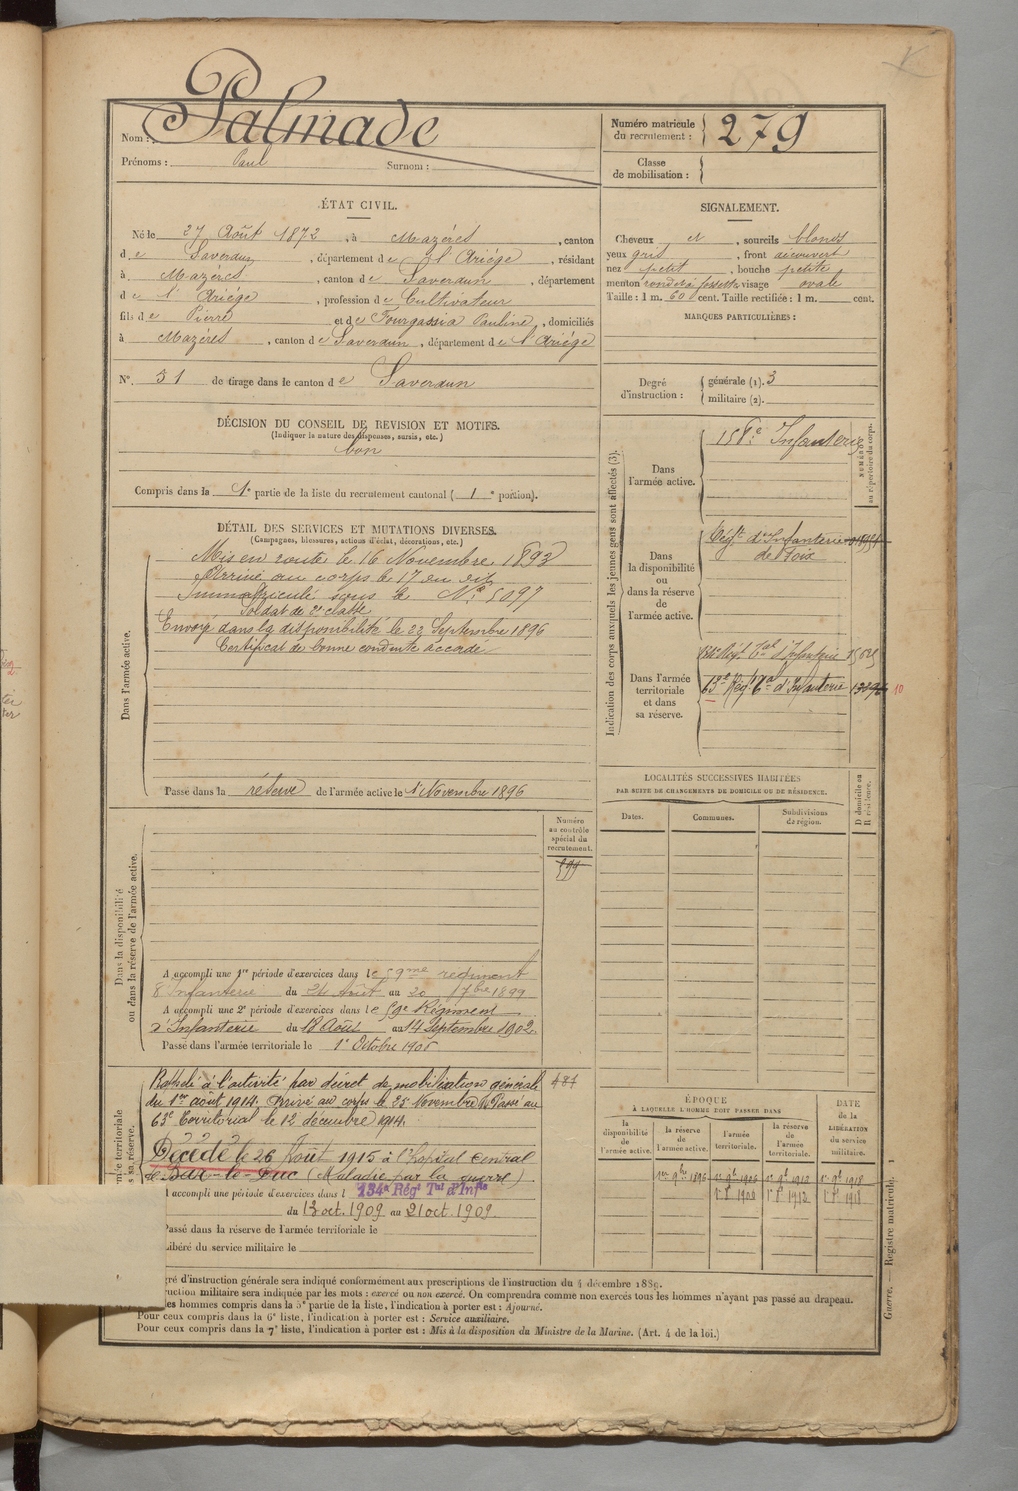 Nom : Palmade
Prénoms : Paul Surnom :
Numéro matricule du recrutement : 279
Classe de mobilisation :
ÉTAT CIVIL.
Né le 27 Août 1872, à Mazères, canton
de Saverdun, département de l'Ariége, résidant
à Mazères, canton de Saverdun, département
de l'Ariége, profession de Cultivateur
fils de Pierre et de Fourgassia Pauline, domiciliés
à Mazères, canton de Saverdun, département de l'Ariége
N° 31 de tirage dans le canton de Saverdun
SIGNALEMENT.
Cheveux et, sourcils blonds
yeux gris, front découvert
nez petit, bouche petite
menton rond à fossette visage ovale
Taille : 1 m. 60 cent. Taille rectifiée : 1 m. cent.
MARQUES PARTICULIÈRES :
Degré d'instruction : générale (1). 3
militaire (2).
DÉCISION DU CONSEIL DE REVISION ET MOTIFS.
(Indiquer la nature des dispenses, sursis, etc.)
bon
Compris dans la 1e partie de la liste du recrutement cantonal ( 1e portion).
DÉTAIL DES SERVICES ET MUTATIONS DIVERSES.
(Campagnes, blessures, actions d'éclat, décorations, etc.)
Dans l'armée active.
Mis en route le 16 Novembre 1893
Arrivé au corps le 17 en
Immatriculé sous le N° 5097
Soldat de 2e classe
Envoyé dans la disponibilité le 22 Septembre 1896
Certificat de bonne conduite accordé
Passé dans la réserve de l'armée active le 1r Novembre 1896
Indication des corps auxquels les jeunes gens sont affectés (3).
NUMÉRO au répertoire du corps.
Dans l'armée active.
158e Infanterie
Dans la disponibilité ou dans la réserve de l'armée active.
Régt d'Infanterie
de Foix
Dans l'armée territoriale et dans sa réserve.
Régt Tal d'Infanterie
63e Régt Tal d'Infanterie
10
LOCALITÉS SUCCESSIVES HABITÉES
PAR SUITE DE CHANGEMENTS DE DOMICILE OU DE RÉSIDENCE.
Dates. Communes. Subdivisions de région. D domicile ou R résidence.
Dans la disponibilité ou dans la réserve de l'armée active.
Numéro au contrôle spécial du recrutement.
A accompli une 1re période d'exercices dans le 59me régiment
d'Infanterie du 24 Août au 20 7bre 1899
A accompli une 2e période d'exercices dans le 59e Régiment
d'Infanterie du 18 Août au 14 Septembre 1902.
Passé dans l'armée territoriale le 1r Octobre 1906
Rappelé à l'activité par décret de mobilisation générale 484
du 1er août 1914. Arrivé au corps le 25 Novembre Passé au
63e Territorial le 12 décembre 1914.
Décédé le 26 Août 1915 à l'hopital Central
de Bar-le-Duc (Maladie par la guerre)
accompli une période d'exercices dans l 134e Régt Tal d'Infie
du 13 oct. 1909 au 21 oct. 1909.
Passé dans la réserve de l'armée territoriale le
Libéré du service militaire le
ÉPOQUE
À LAQUELLE L'HOMME DOIT PASSER DANS
la disponibilité de l'armée active. la réserve de l'armée active. l'armée territoriale. la réserve de l'armée territoriale.
DATE de la LIBÉRATION du service militaire.
gré d'instruction générale sera indiqué conformément aux prescriptions de l'instruction du 4 décembre 1889.
ruction militaire sera indiquée par les mots : exercé ou non exercé. On comprendra comme non exercés tous les hommes n'ayant pas passé au drapeau.
es hommes compris dans la 5e partie de la liste, l'indication à porter est : Ajourné.
Pour ceux compris dans la 6e liste, l'indication à porter est : Service auxiliaire.
Pour ceux compris dans la 7e liste, l'indication à porter est : Mis à la disposition du Ministre de la Marine. (Art. 4 de la loi.)
Guerre. — Registre matricule. 1